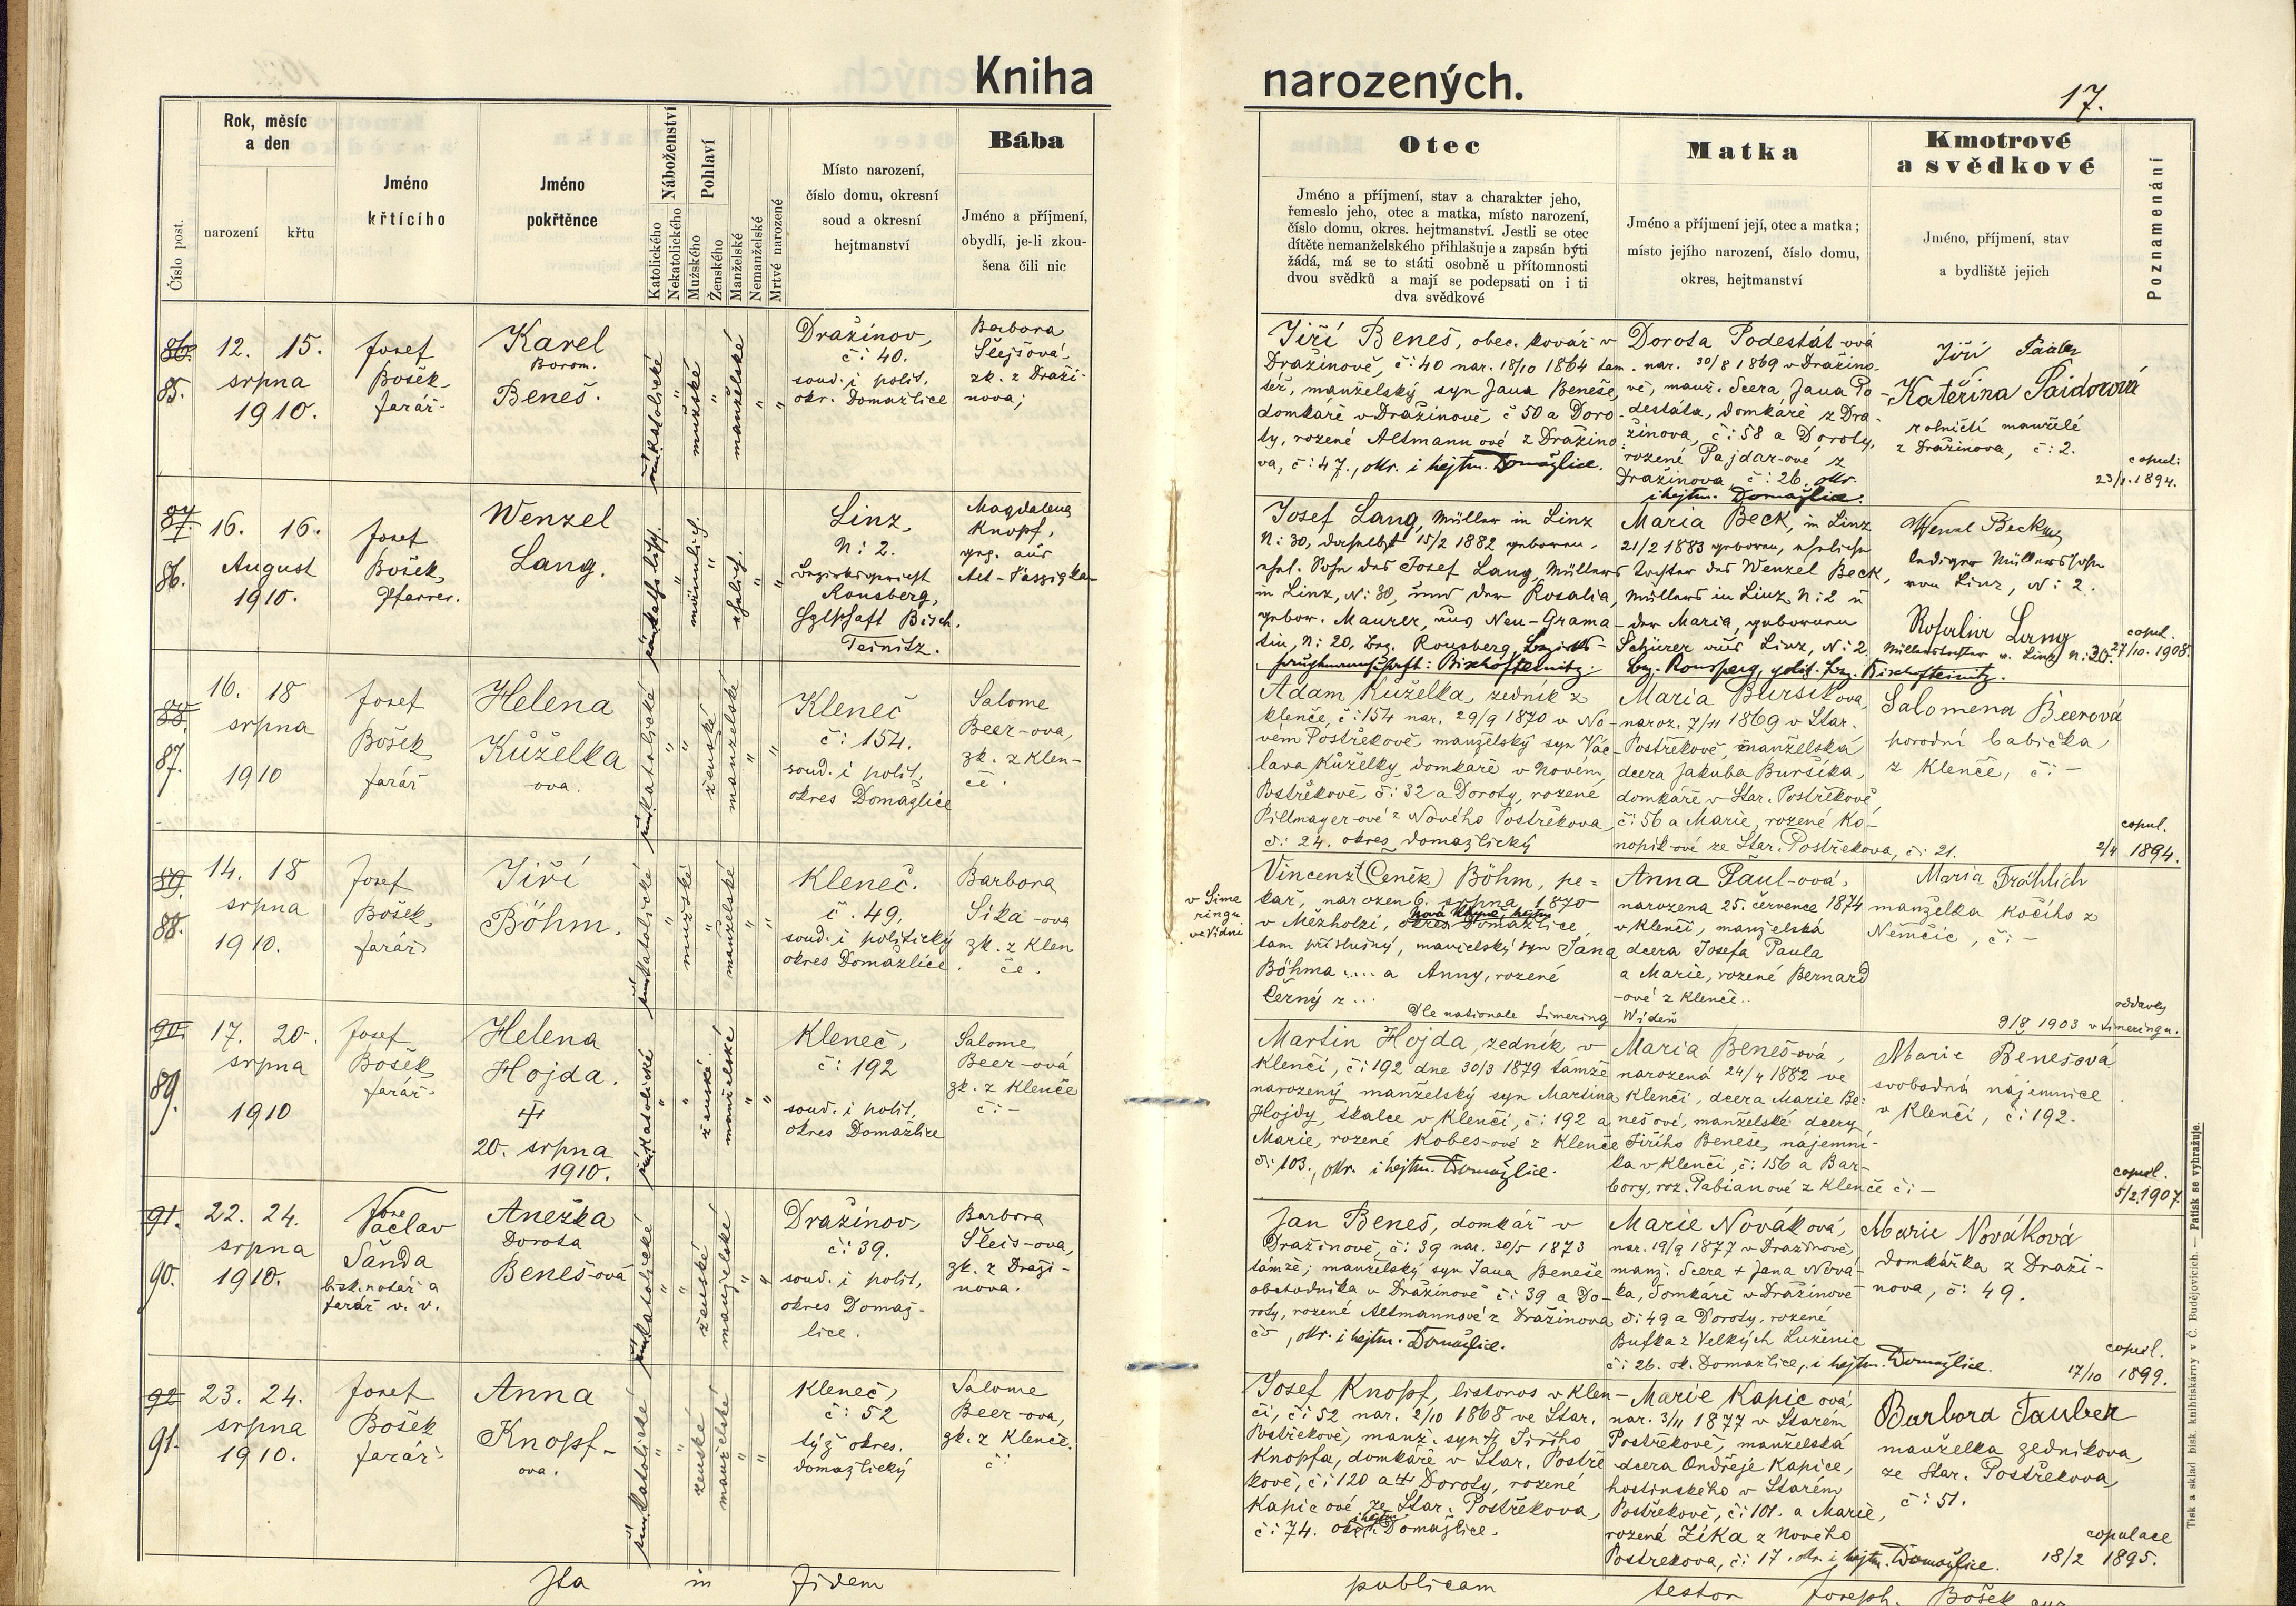 Kniha
narozených.
17.
Číslo post.
Rok, měsíc
a den
narození
křtu
Jméno
křtícího
Jméno
pokřtěnce
Náboženství
Katolického
Nekatolického
Pohlaví
Mužského
Ženského
Manželské
Nemanželské
Mrtvé narozené
Místo narození,
číslo domu, okresní
soud a okresní
hejtmanství
Bába
Jméno a příjmení,
obydlí, je-li zkou-
šena čili nic
Otec
Jméno a příjmení, stav a charakter jeho,
řemeslo jeho, otec a matka, místo narození,
číslo domu, okres. hejtmanství. Jestli se otec
dítěte nemanželského přihlašuje a zapsán býti
žádá, má se to státi osobně u přítomnosti
dvou svědků a mají se podepsati on i ti
dva svědkové
Matka
Jméno a příjmení její, otec a matka;
místo jejího narození, číslo domu,
okres, hejtmanství
Kmotrové
a svědkové
Jméno, příjmení, stav
a bydliště jejich
Poznamenání
86.
85.
12. 15.
srpna
1910.
Josef
Bošek,
farář.
Karel
Borom.
Beneš.
římskatolické
"
mužské
"
manželské
"
"
Dražinov,
č: 40.
soud. i polit.
okr. Domažlice
Barbora
Šlejsová,
zk. z Draži-
nova;
Jiří Beneš, obec. kovář v
Dražinově, č: 40 nar. 18/10 1864 tam-
též, manželský syn Jana Beneše,
domkáře v Dražinově, č 50 a Doro-
ty, rozené Altmannové z Dražino-
va, č: 47., okr. i hejtm. Domažlice.
Dorota Podestát-ová
nar. 30/8 1869 v Dražino-
vě, manž. dcera Jana Po-
destáta, domkáře z Dra-
žinova, č: 58 a Doroty,
rozené Pajdar-ové z
Dražinova, č: 26. okr.
i hejtm. Domažlice.
Jiří
Kateřina Paidorová
rolničtí manželé
z Dražinova, č: 2.
copul:
23/1. 1894.
87.
86.
16. 16.
August
1910.
Josef
Bošek,
Pfarrer.
Wenzel
Lang.
römkatholisch.
"
männlich.
"
ehelich.
"
"
Linz,
N: 2.
Bezirksgericht
Ronsberg,
Hptschaft Bisch.
Teinitz.
Magdalena
Knopf,
gep. aus
Alt-Passigkau
Josef Lang, Müller in Linz
N: 30, daselbst 15/2 1882 geboren,
ehel. Sohn des Josef Lang, Müllers
in Linz, N: 30, und der Rosalia,
gebor. Maurer, aus Neu-Grama-
tin, N: 20, Bez. Ronsberg, Bezirks-
hauptmannschaft: Bischofteinitz.
Maria Beck, in Linz
21/2 1883 geboren, eheliche
Tochter des Wenzel Beck,
Müllers in Linz, N: 2 u
der Maria, geborenen
Schürer aus Linz, N: 2.
Bez. Ronsperg, polit. Bez. Bischofteinitz.
Wenzl Beck
lediger Müllerssohn
von Linz, N: 2.
Rosalia Lang
Müllerstochter v. Linz N: 30.
copul.
27/10. 1908.
88.
87.
16. 18
srpna
1910
Josef
Bošek
farář
Helena
Kůželka
ova.
římskatolické
"
"
ženské
manželské
"
"
Kleneč
č: 154.
soud. i polit.
okres Domažlice
Salome
Beer-ova,
zk. z Klen-
če.
Adam Kůželka, zedník z
Klenče, č: 154 nar. 29/9 1870 v No-
vém Postřekově, manželský syn Vác-
lava Kůželky, domkáře v Novém
Postřekově, č: 32 a Doroty, rozené
Pillmayer-ové z Nového Postřekova
č: 24. okres domažlický
Maria Buršíkova,
naroz. 7/11 1869 v Star.
Postřekově, manželská
dcera Jakuba Buršíka,
domkáře v Star. Postřekově,
č: 56 a Marie, rozené Ko-
nopik-ové ze Star. Postřekova, č: 21.
Salomena Beerová
porodní babička,
z Klenče, č: –
copul.
2/4 1894.
89.
88.
14. 18
srpna
1910.
Josef
Bošek,
farář
Jiří
Böhm.
římskatolické
"
mužské
"
manželské
"
"
Kleneč.
č. 49,
soud. i politický
okres Domažlice.
Barbora
Sika-ova
zk. z Klen
če.
v Sime
ringu
ve Vídni
Vincenz (Čeněk) Böhm, pe-
kař, narozen 6. srpna 1870
v Mezholzi, okres Domažlice,
tam příslušný, manželský syn Jana
Böhma .... a Anny, rozené
Černý z ...
Dle nationale Simering Wideň
Anna Paul-ová,
narozena 25. července 1874
v Klenčí, manželská
dcera Josefa Paula
a Marie, rozené Bernard
-ové z Klenče..
Maria Fröhlich
manželka kočího z
Němčic, č: –
oddavky
9/8 1903 v Simeringu.
90.
89.
17. 20.
srpna
1910
Josef
Bošek
farář.
Helena
Hojda.
20. srpna
1910.
římskatolické
"
"
ženské
manželské
"
"
Kleneč,
č: 192
soud. i polit.
okres Domažlice
Salome
Beer-ová
zk. z Klenče
č: –
Martin Hojda, zedník v
Klenčí, č: 192 dne 30/3 1879 tamže
narozený manželský syn Martina
Hojdy, skalce v Klenčí, č: 192 a
Marie, rozené Kobes-ové z Klenče
č: 103., okr. i hejtm. Domažlice.
Maria Beneš-ová,
narozená 24/4 1882 ve
Klenčí, dcera Marie Be-
nešové, manželské dcery
Jiřího Beneše, nájemní-
ka v Klenčí, č: 156 a Bar-
bory, roz. Fabianové z Klenče č: –
Marie Benešová
svobodná nájemnice
v Klenčí, č: 192.
copul.
5/2. 1907
91.
90.
22. 24.
srpna
1910.
Václav
Šanda
bisk. notář a
farář v. v.
Anežka
Dorota
Beneš-ová
římskatolické
"
"
ženské
manželské
"
"
Dražinov,
č: 39.
soud. i polit.
okres Domaž-
lice.
Barbora
Šleis-ova,
zk. z Draži-
nova.
Jan Beneš, domkář v
Dražinově, č: 39 nar. 30/5 1873
tamže; manželský syn Jana Beneše
obchodníka v Dražinově č: 39 a Do-
roty, rozené Altmannové z Dražinova
č: , okr. i hejtm. Domažlice.
Marie Nováková,
nar. 19/9 1877 v Dražinově,
manž. dcera + Jana Nová-
ka, domkáře v Dražinově
č: 49 a Doroty, rozené
Bufka z Velkých Luženic
č: 26. ok. Domažlice, i hejtm. Domažlice.
Marie Nováková
domkářka z Draži-
nova, č: 49.
copul.
17/10 1899.
92
91.
23. 24.
srpna
1910.
Josef
Bošek
farář.
Anna
Knopf-
ova.
římskatolické
"
"
ženské
manželské
"
"
Kleneč,
č: 52
týž okres.
domažlický
Salome
Beer-ova,
zk. z Klenče.
č:
Josef Knopf, listonoš v Klen-
čí, č: 52 nar. 2/10 1868 ve Star.
Postřekově, manž. syn Jiřího
Knopfa, domkáře v Star. Postře
kově, č: 120 a Doroty, rozené
Kapicové ze Star. Postřekova,
č: 74. okr. i hejtm. Domažlice.
Marie Kapicová,
nar. 3/11 1877 v Starém
Postřekově, manželská
dcera Ondřeje Kapice,
hostinského v Starém
Postřekově, č: 101. a Marie,
rozená Zíka z Nového
Postřekova, č: 17. okr. i hejtm. Domažlice.
Barbora Tauber
manželka zedníkova,
ze Star. Postřekova,
č: 51.
copulace
18/2 1895.
Ita in fidem publicam testor Joseph. Bošek
Tisk a sklad bisk. knihtiskárny v Č. Budějovicích. — Patisk se vyhražuje.